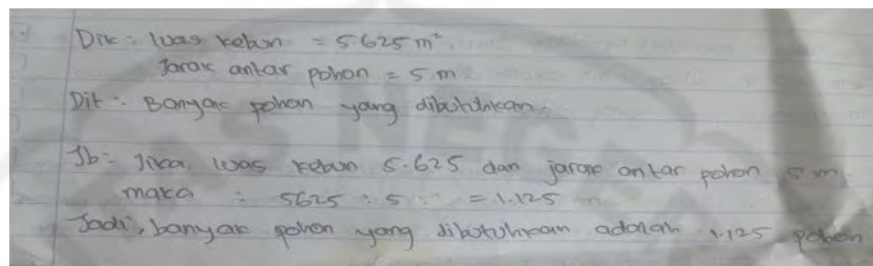 Dik : luas kebun = 5.625 m².
Jarak antar pohon = 5 m
Dit : Banyak pohon yang dibutuhkan.
Jb : Jika luas kebun 5.625 dan jarak antar pohon 5 m,
maka : 5625 : 5 = 1.125
Jadi, banyak pohon yang dibutuhkan adalah 1.125 pohon